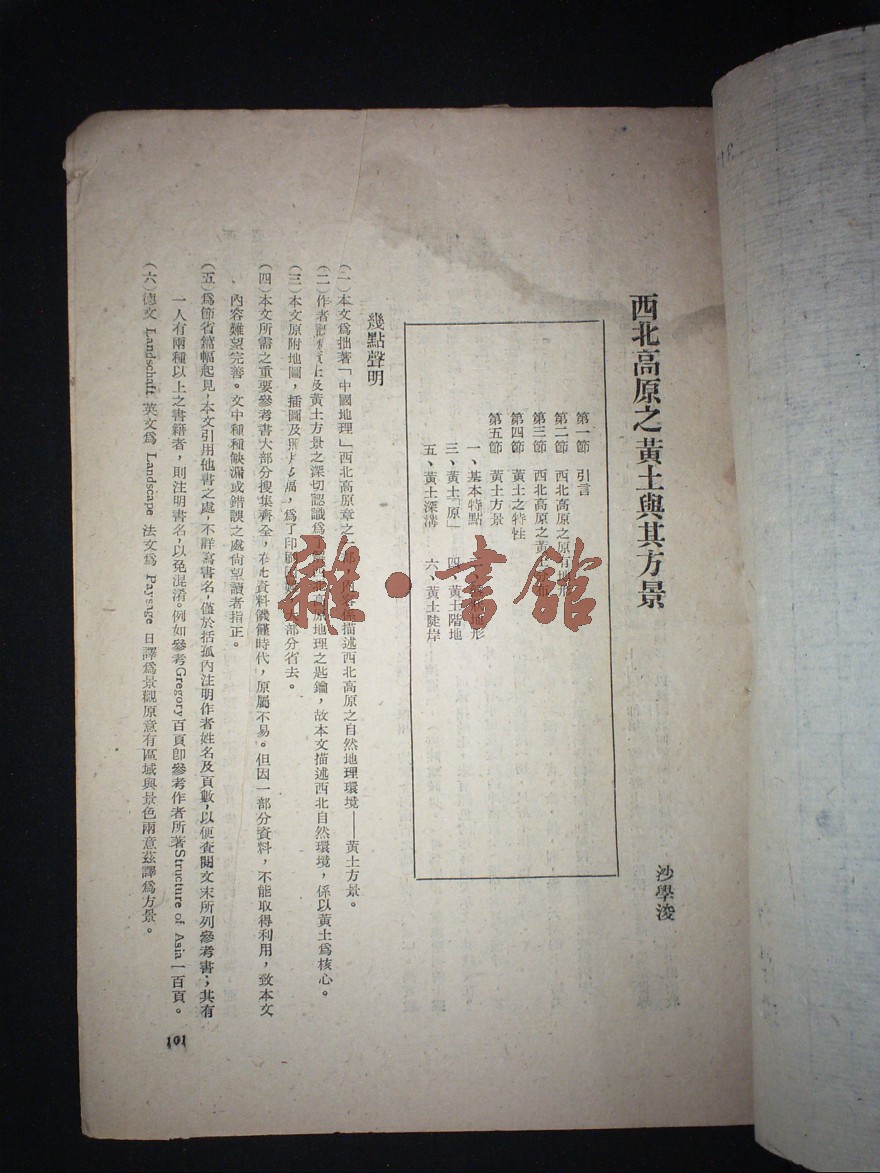 西北高原之黃土與其方景
沙學浚
第一節 引言
第二節 西北高原之原有地形
第三節 西北高原之黃土
第四節 黃土之特性
第五節 黃土方景
一、基本特點 地形
三、黃土「原」 四、黃土階地
五、黃土深溝 六、黃土陡岸
幾點聲明
(一)本文爲拙著「中國地理」西北高原章之一部 描述西北高原之自然地理環境——黃土方景。
(二)作者 黃土及黃土方景之深切認識爲 高原地理之匙鑰,故本文描述西北自然環境,係以黃土爲核心。
(三)本文原附地圖,插圖及照片 爲了印刷 大部分省去。
(四)本文所需之重要參考書大部分搜集齊全,在此資料饑饉時代,原屬不易。但因一部分資料,不能取得利用,致本文
內容難望完善。文中種種缺漏或錯誤之處尙望讀者指正。
(五)爲節省篇幅起見,本文引用他書之處,不詳寫書名,僅於括弧內注明作者姓名及頁數,以便查閱文末所列參考書;其有
一人有兩種以上之書籍者,則注明書名,以免混淆。例如參考Gregory百頁卽參考作者所著Structure of Asia一百頁。
(六)德文 Landschaft 英文爲 Landscape 法文爲 Paysage 日譯爲景觀原意有區域與景色兩意茲譯爲方景。
101
雜·書館